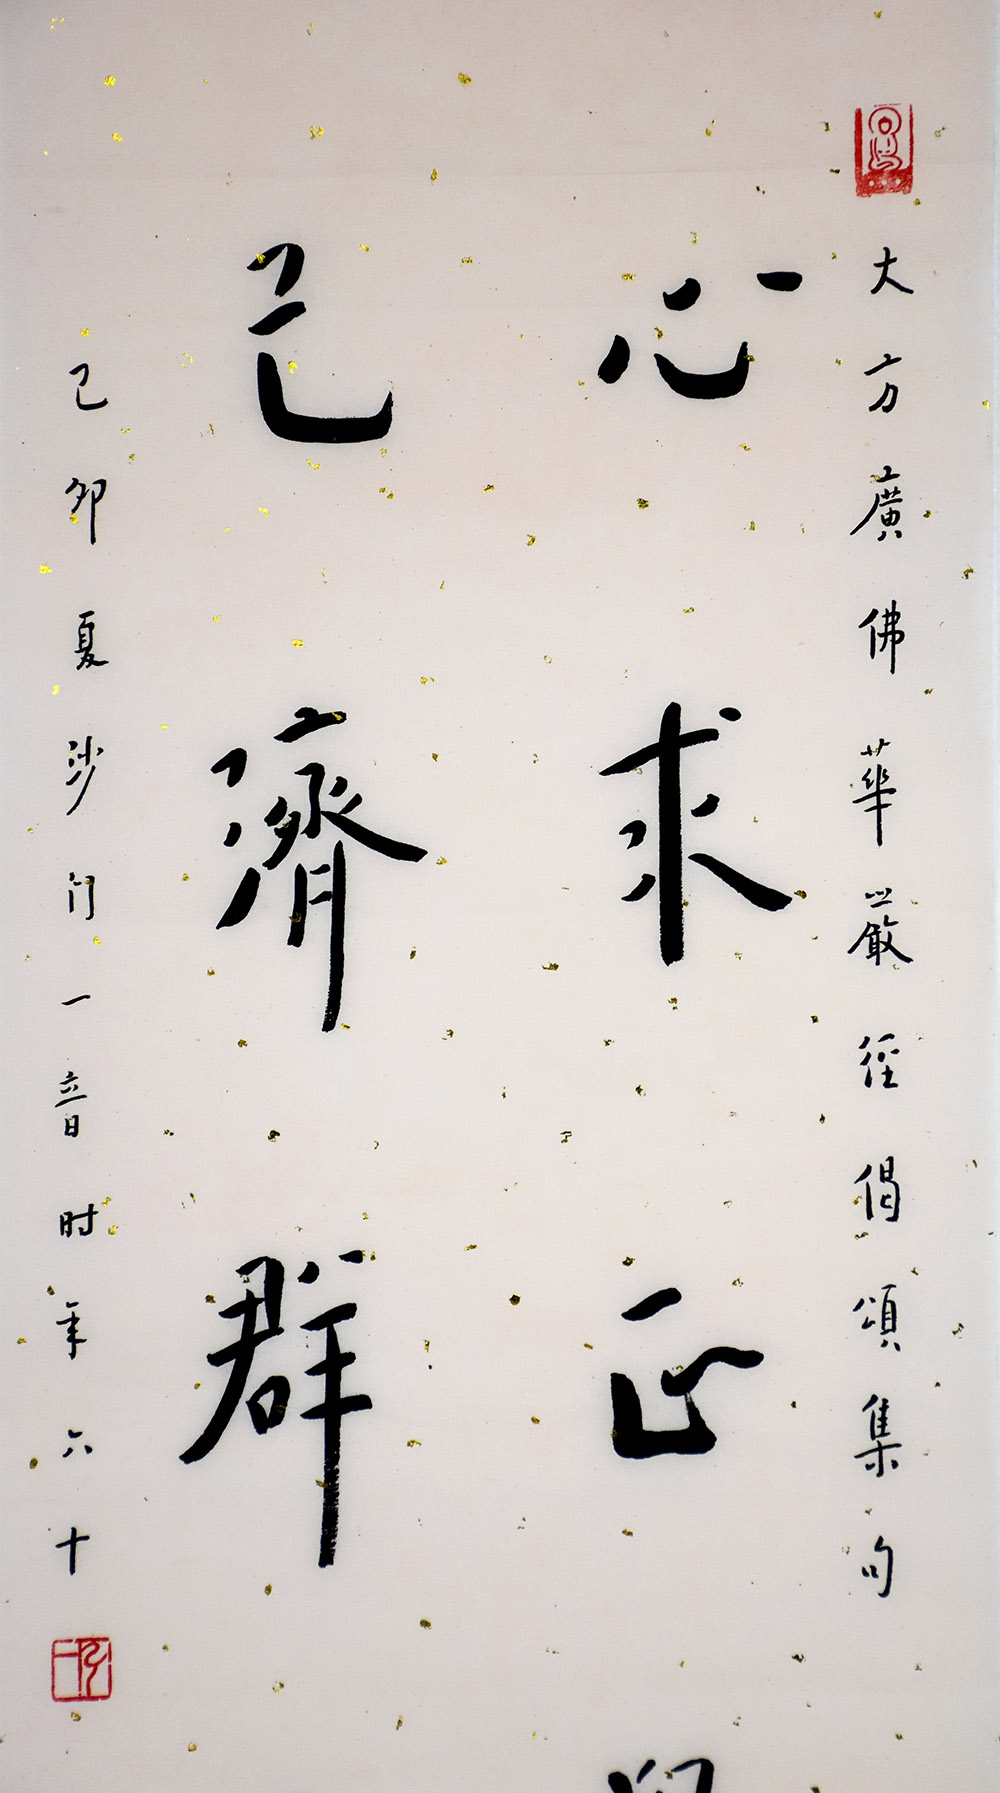 大方廣佛華嚴經偈頌集句
心求正
己濟群
己卯夏沙门一音时年六十